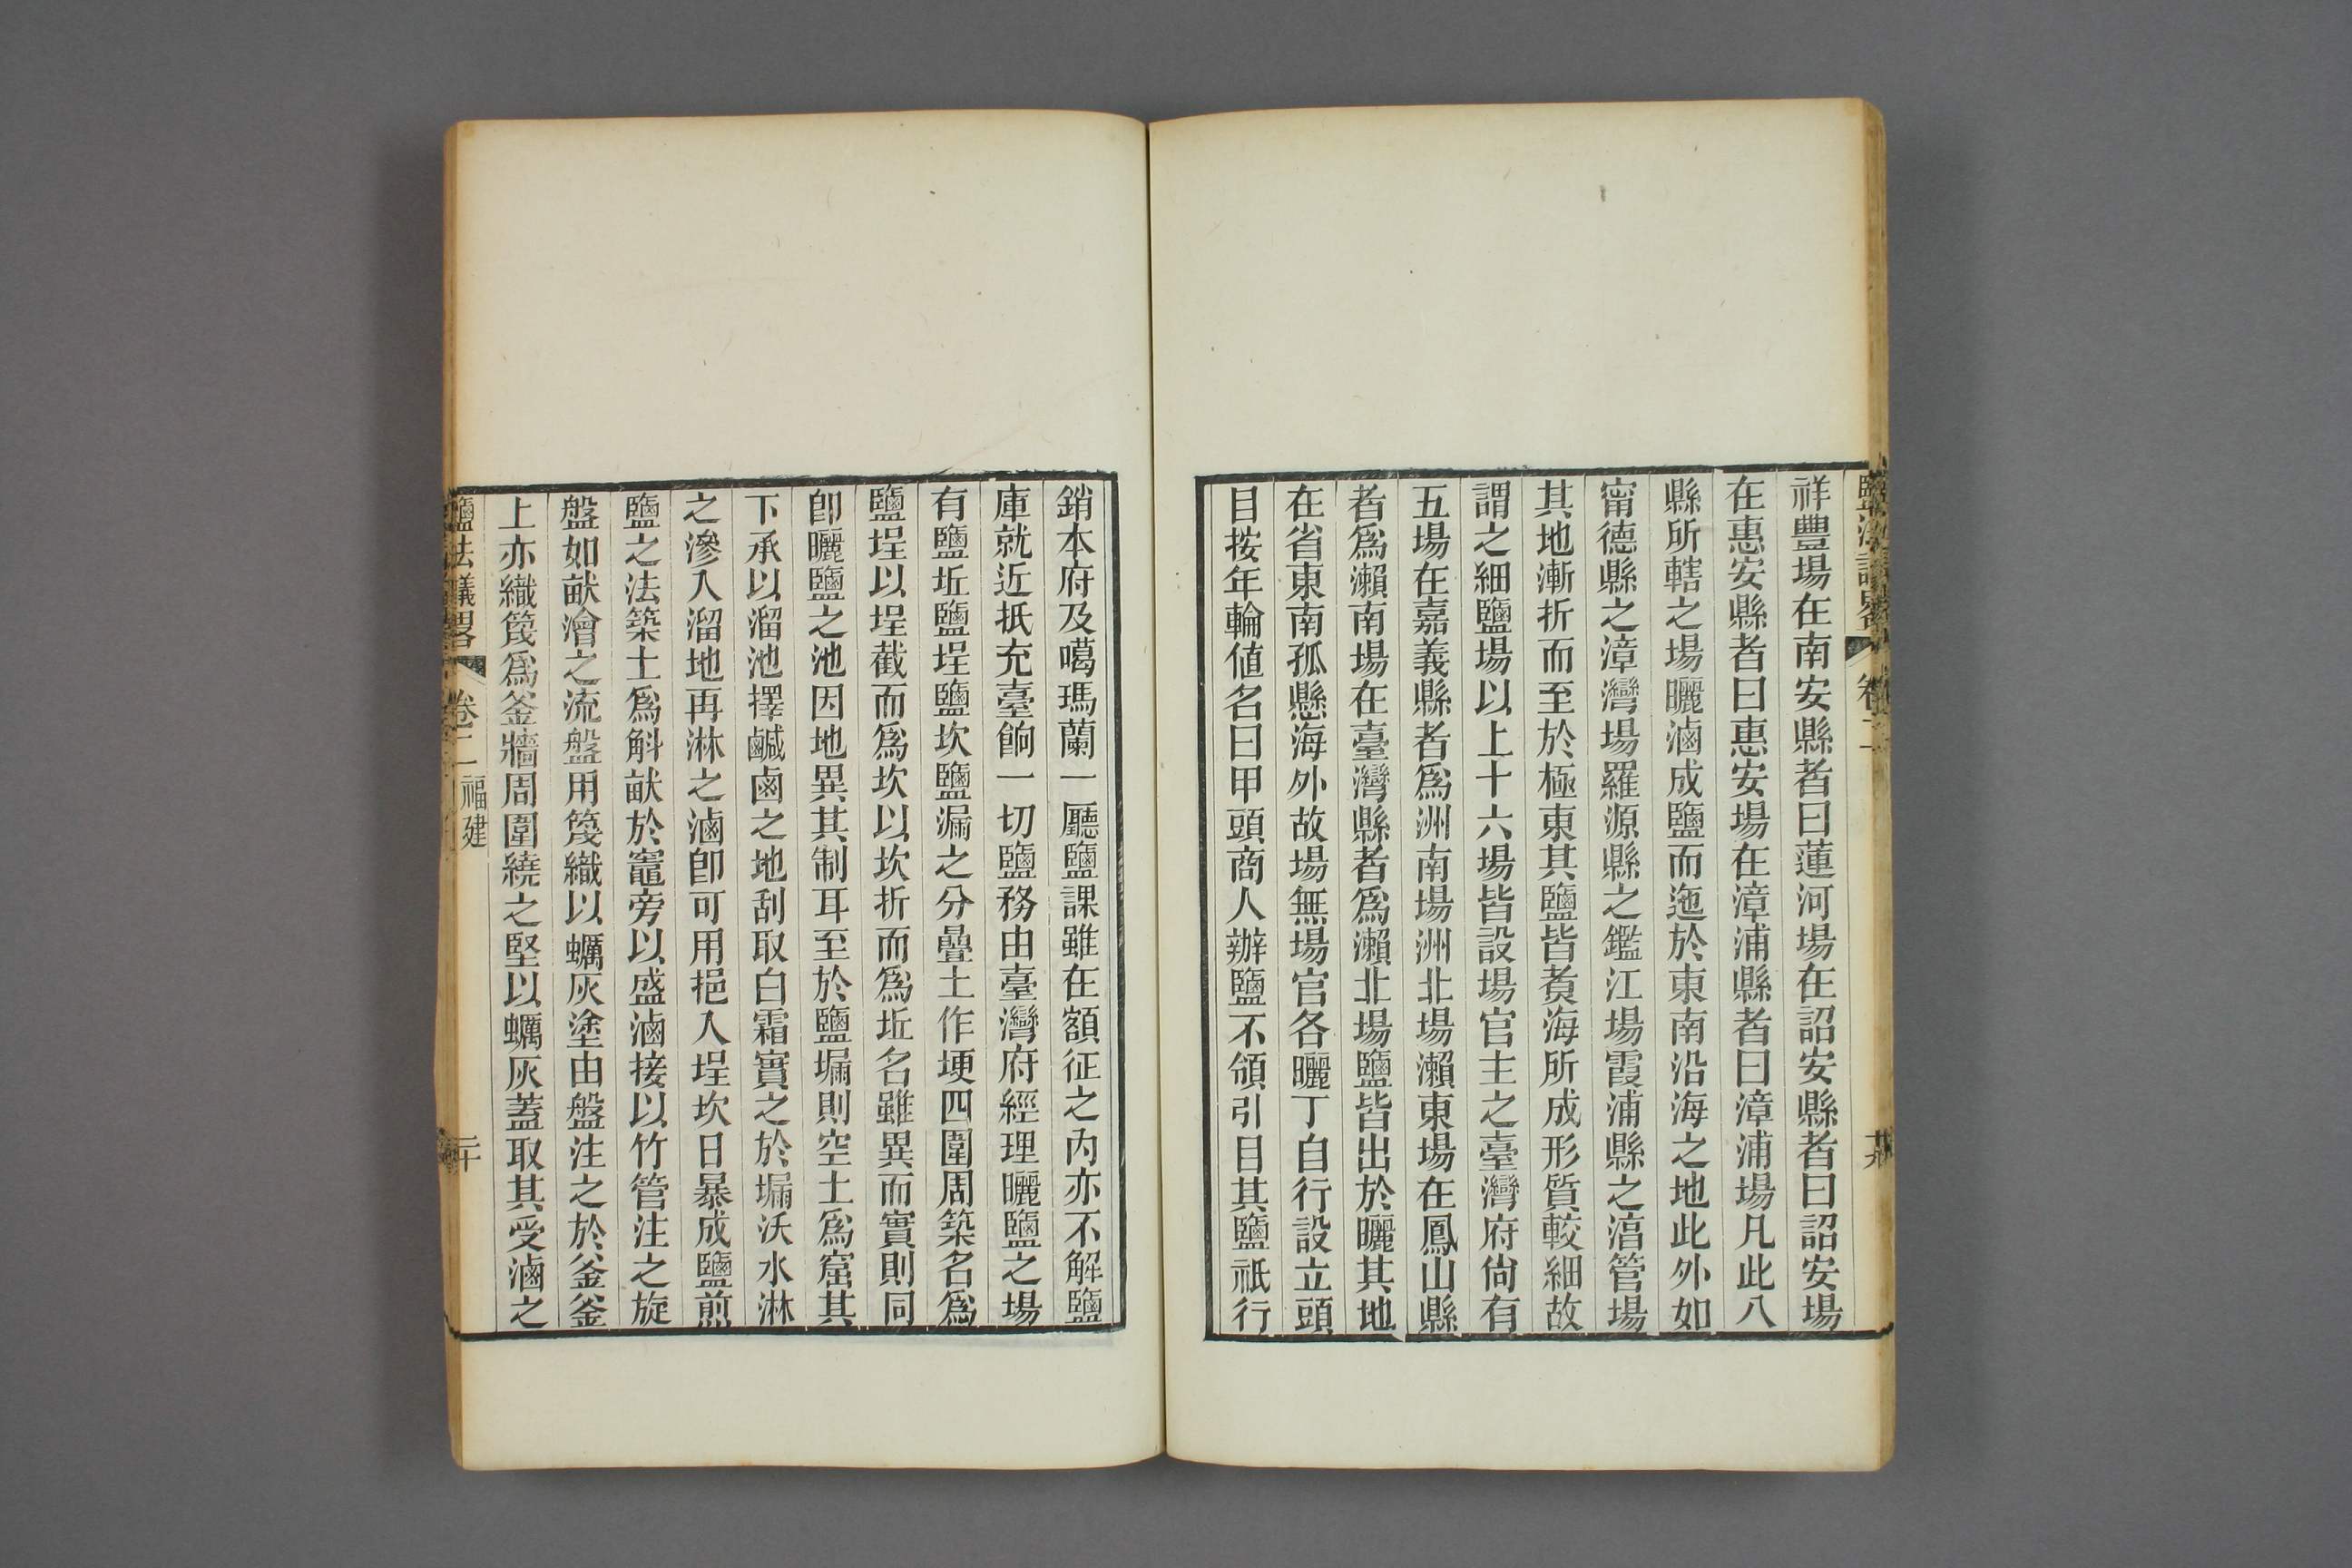 祥豐場在南安縣者曰蓮河場在詔安縣者曰詔安場
在惠安縣者曰惠安場在漳浦縣者曰漳浦場凡此八
縣所轄之場曬滷成鹽而迤於東南沿海之地此外如
甯德縣之漳灣場羅源縣之鑑江場霞浦縣之淯管場
其地漸折而至於極東其鹽皆煑海所成形質較細故
謂之細鹽場以上十六場皆設場官主之臺灣府尙有
五場在嘉義縣者爲洲南場洲北場瀨東場在鳳山縣
者爲瀨南場在臺灣縣者爲瀨北場鹽皆出於曬其地
在省東南孤懸海外故場無場官各曬丁自行設立頭
目按年輪値名曰甲頭商人辦鹽不領引目其鹽祇行
銷本府及噶瑪蘭一廳鹽課雖在額征之內亦不解鹽
庫就近抵充臺餉一切鹽務由臺灣府經理曬鹽之場
有鹽坵鹽埕鹽坎鹽漏之分疊土作埂四圍周築名爲
鹽埕以埕截而爲坎以坎折而爲坵名雖異而實則同
卽曬鹽之池因地異其制耳至於鹽塥則空土爲窟其
下承以溜池擇鹹鹵之地刮取白霜實之於塥沃水淋
之滲入溜地再淋之滷卽可用挹入埕坎日暴成鹽煎
鹽之法築土爲斛畝於竈旁以盛滷接以竹管注之旋
盤如畎澮之流盤用篾織以蠣灰塗由盤注之於釜釜
上亦織篾爲釜牆周圍繞之堅以蠣灰蓋取其受滷之
鹽法議畧 卷二 福建 二十